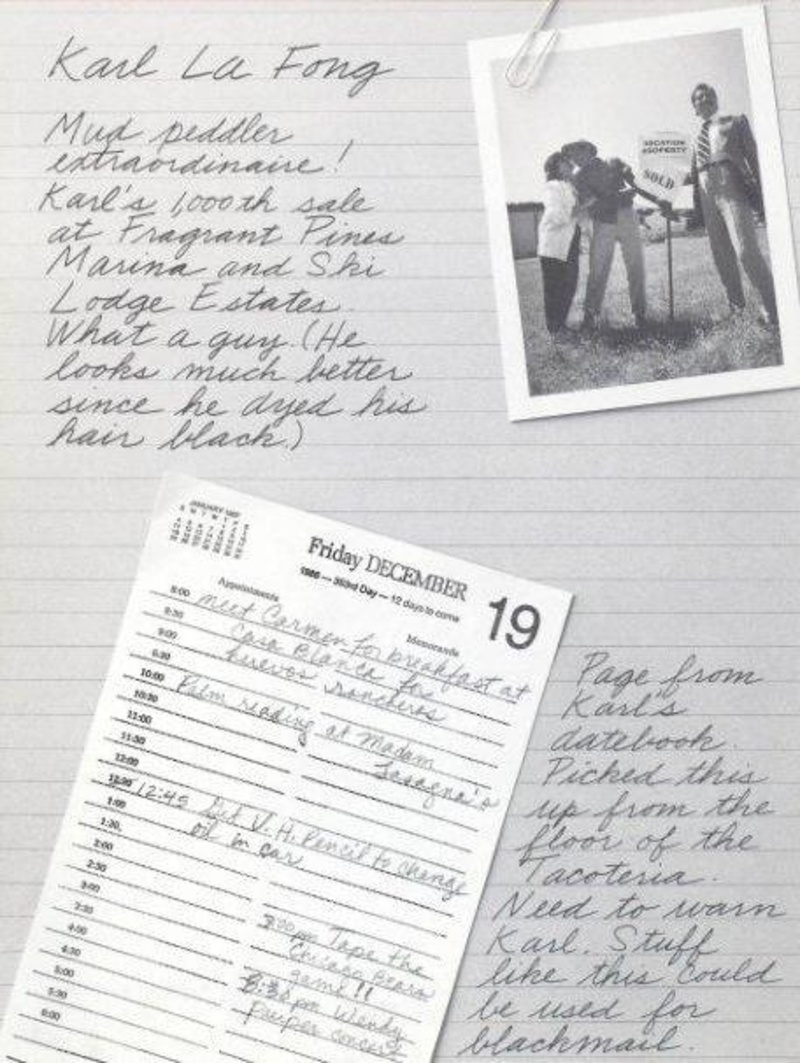 Karl La Fong
Mud peddler
extraordinaire!
Karl's 1,000th sale
at Fragrant Pines
Marina and Ski
Lodge Estates.
What a guy. (He
looks much better
since he dyed his
hair black.)
SOLD
JANUARY
Friday DECEMBER 19
1986 — 353rd Day — 12 days to come
Appointments
Memoranda
8:00 meet Carmen for breakfast at
8:30 Casa Blanca for
9:00 huevos rancheros
9:30
10:00 Palm reading at Madam
10:30 Lasagna's
11:00
11:30
12:00
12:30 12:45 Get V. H. Pencil to change
1:00 oil in car
1:30
2:00
2:30
3:00 3:00 pm Tape the
Chicago Bears
game!!
4:00 8:30 pm Wendy
4:30 Pusper concert
5:00
5:30
6:00
Page from
Karl's
datebook.
Picked this
up from the
floor of the
Tacoteria.
Need to warn
Karl. Stuff
like this could
be used for
blackmail.